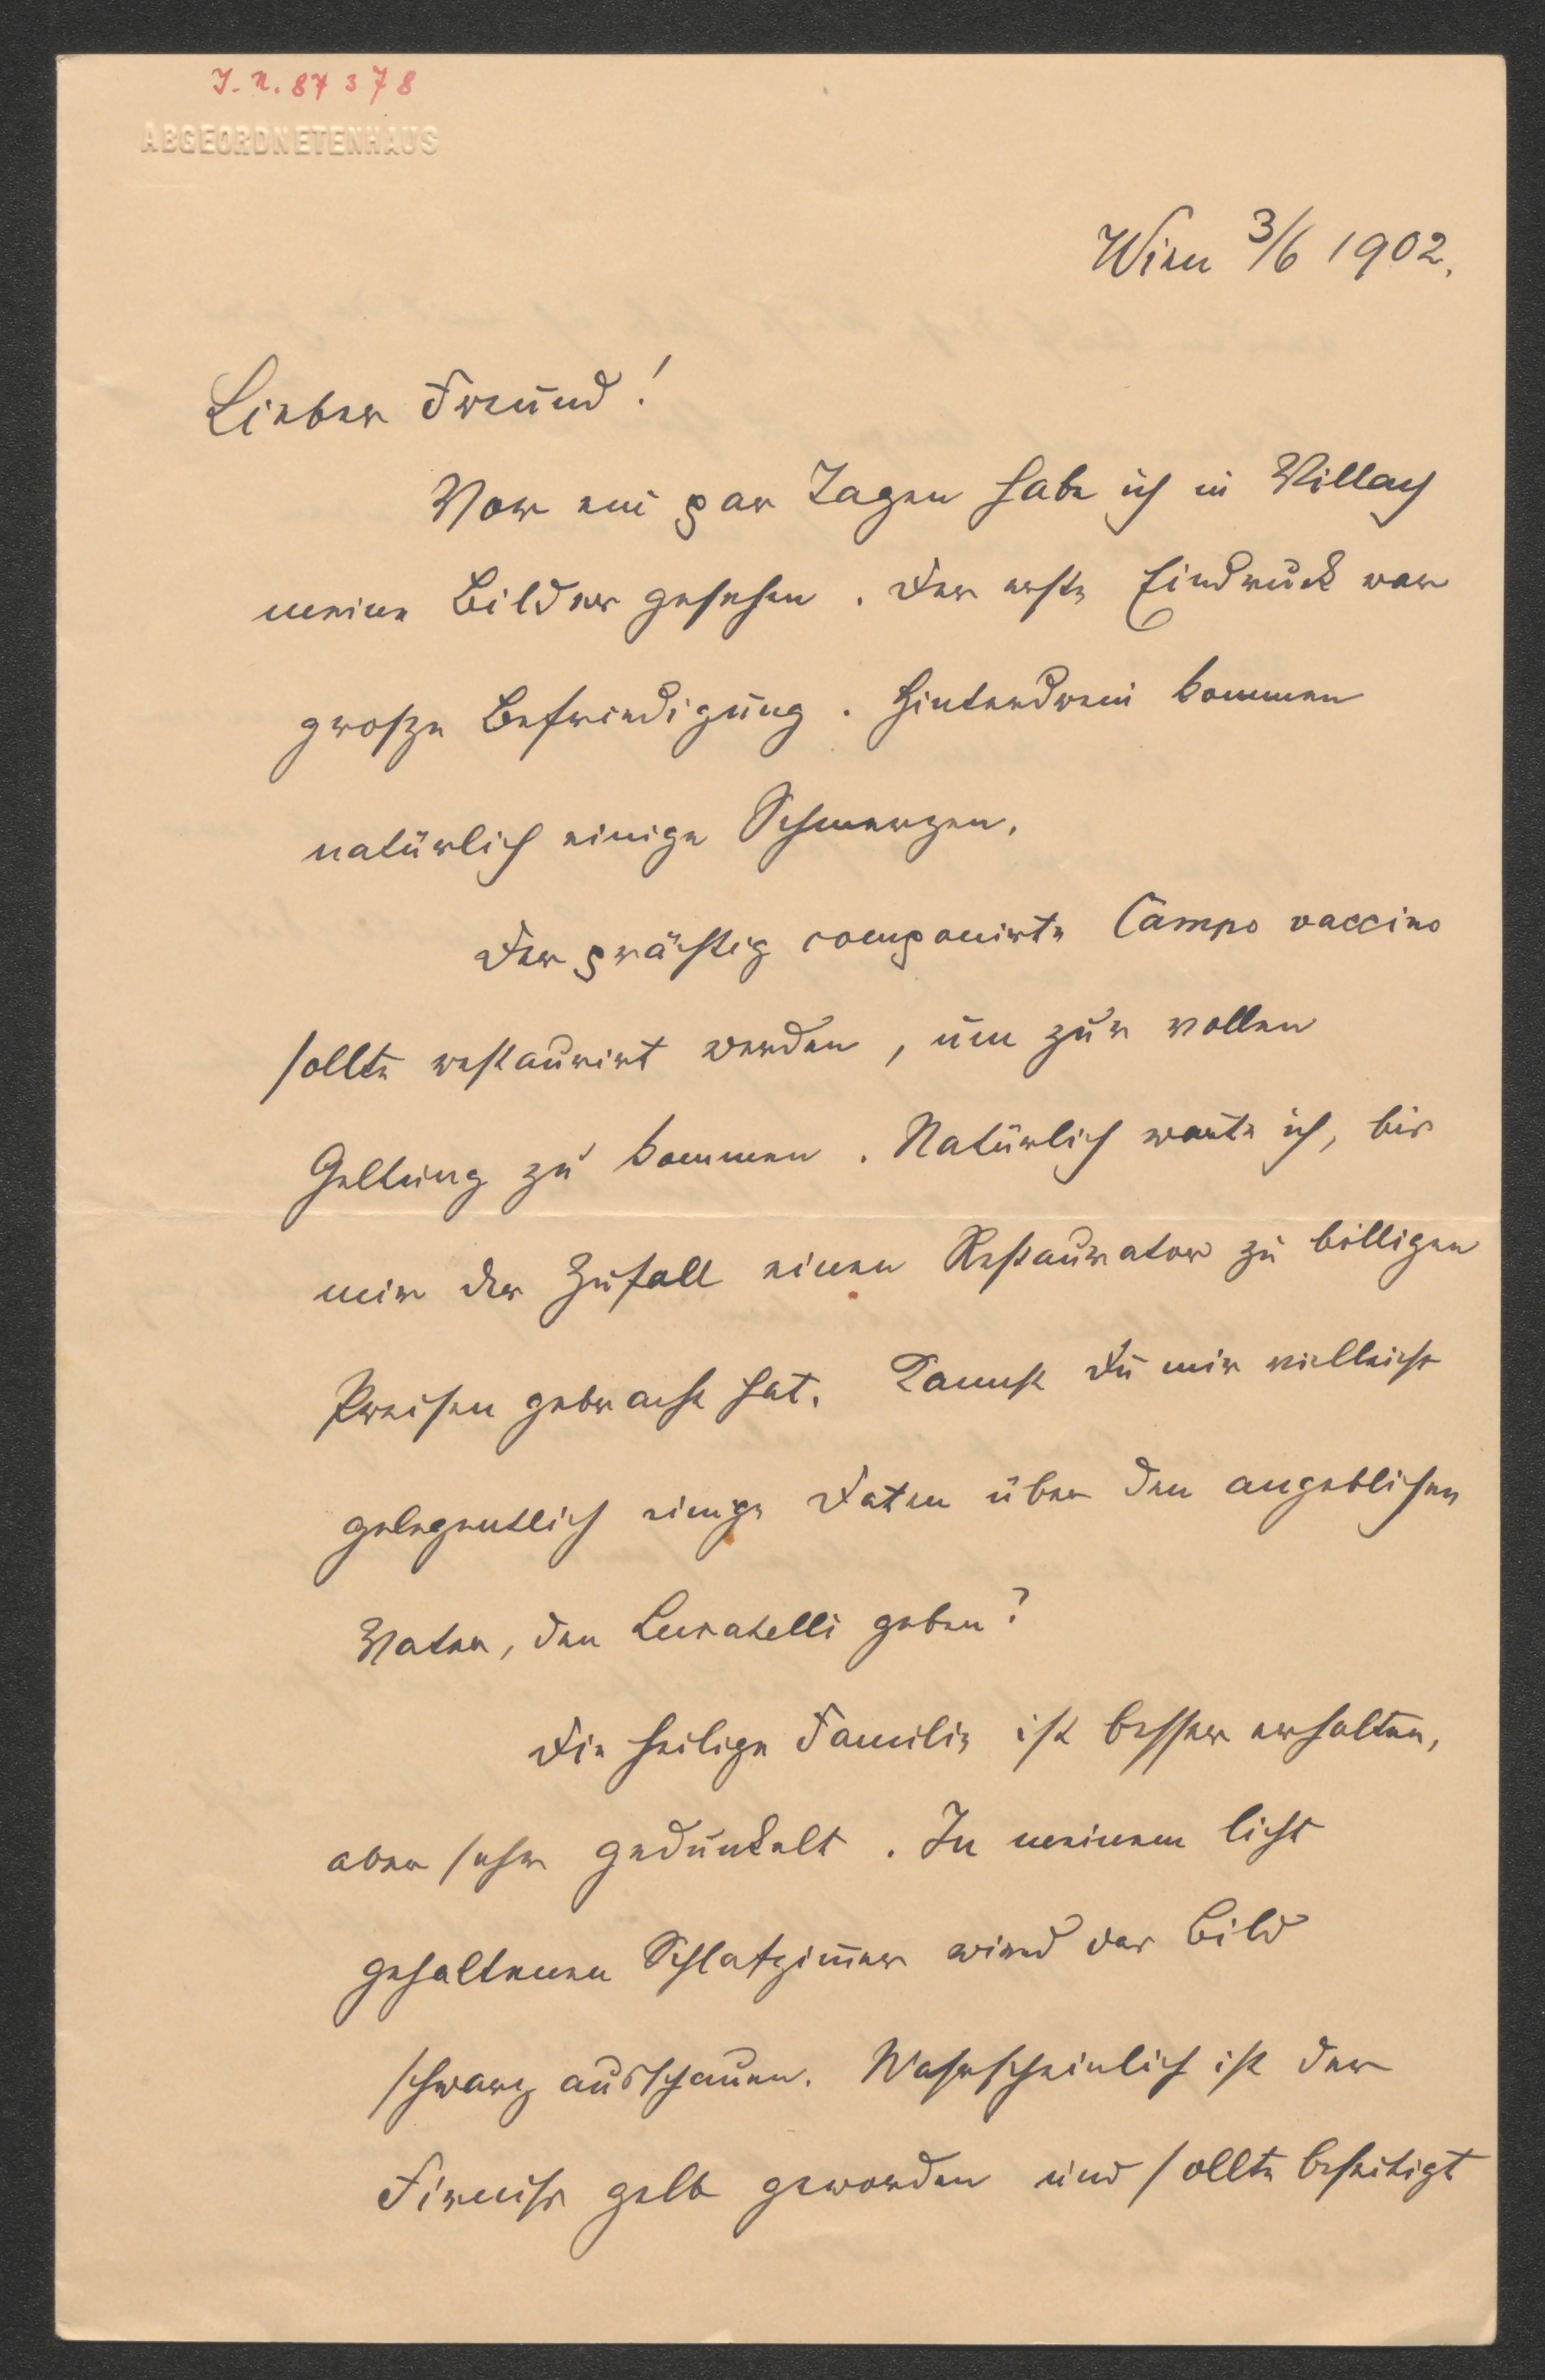 J. N. 87378
ABGEORDNETENHAUS
Wien 3/6 1902.
Lieber Freund!
Vor ein par Tagen habe ich in Villach
meine Bilder gesehen. Der erste Eindruck war
große Befriedigung. Hinterdrein kommen
natürlich einige Schmerzen.
Der prächtig componirte Campo vaccino
sollte restaurirt werden, um zur vollen
Geltung zu kommen. Natürlich warte ich, bis
mir der Zufall einen Restaurator zu billigen
Preisen gebracht hat. Kannst Du mir vielleicht
gelegentlich einige Daten über den angeblichen
Vater, den Lucatelli geben?
Die heilige Familie ist besser erhalten,
aber sehr gedunkelt. In meinem licht
gehaltenen Schlafzimer wird das Bild
schwarz ausschauen. Wahrscheinlich ist der
Firniss gelb geworden und sollte beseitigt